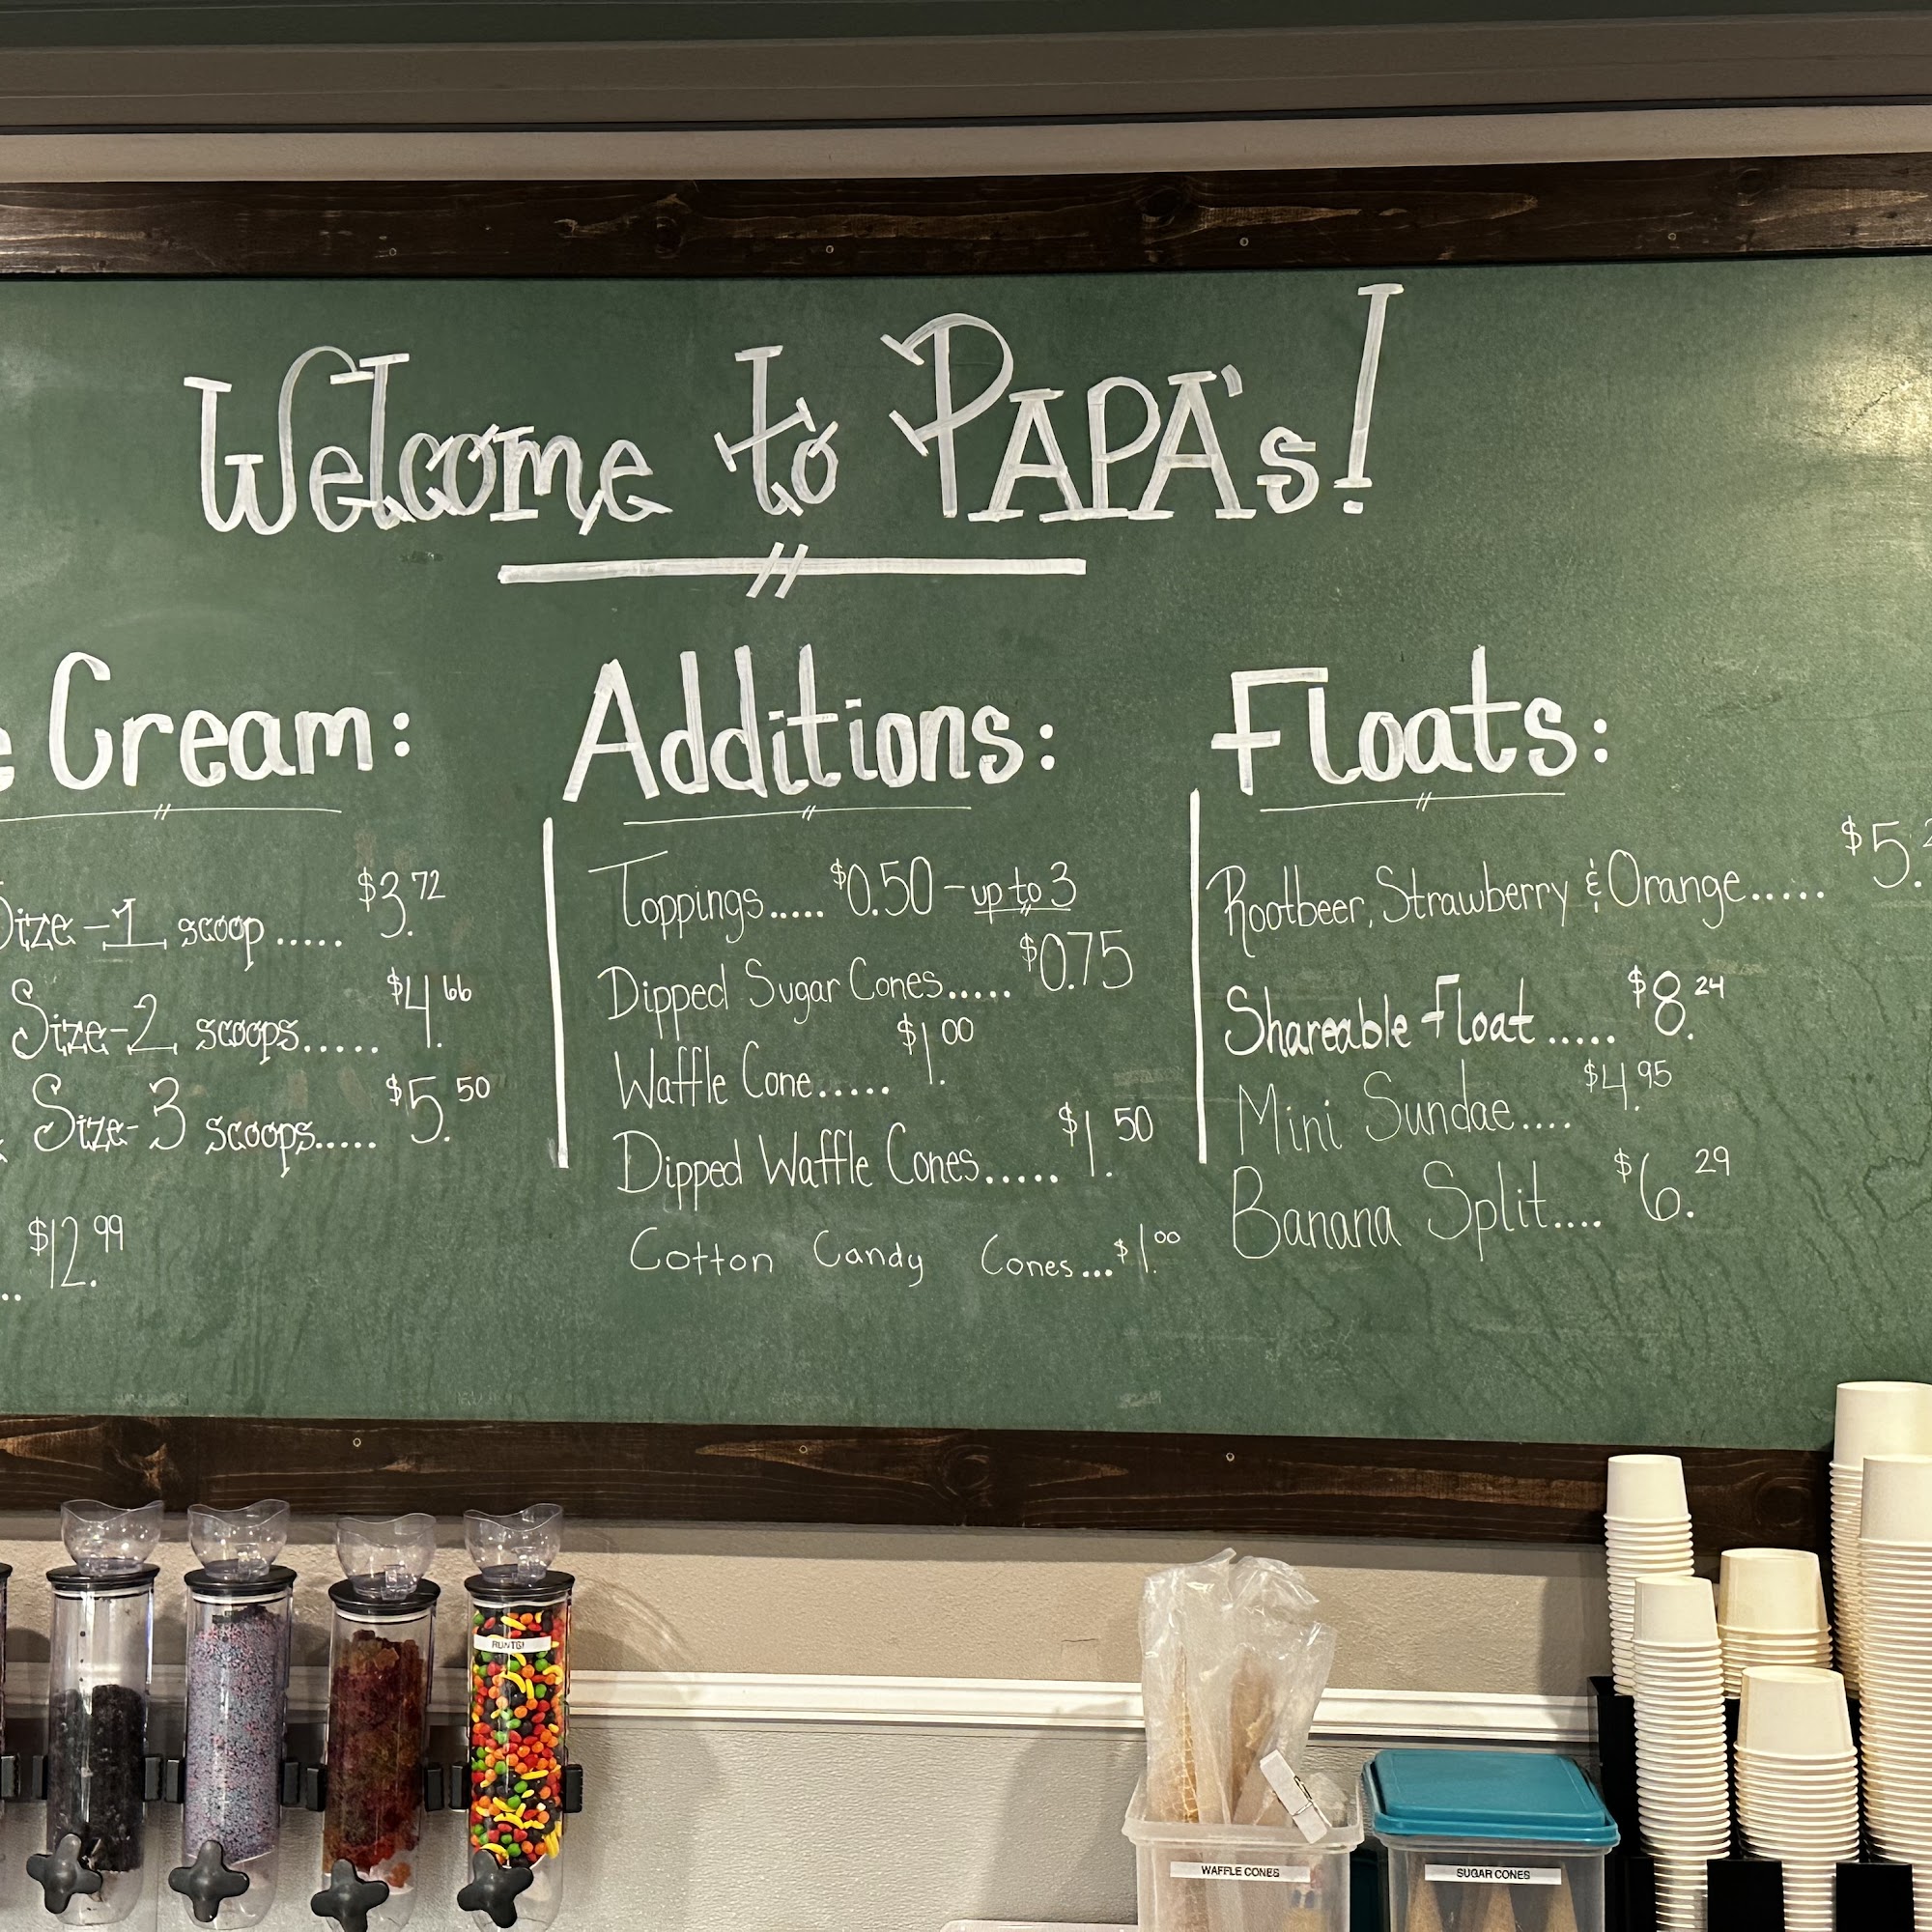 Welcome to PAPA's!
Cream:
Size-1 scoop..... $3.72
Size-2 scoops..... $4.66
Size-3 scoops..... $5.50
.. $12.99
Additions:
Toppings..... $0.50 - up to 3
Dipped Sugar Cones..... $0.75
Waffle Cone..... $1.00
Dipped Waffle Cones..... $1.50
Cotton Candy Cones... $1.00
Floats:
Rootbeer, Strawberry & Orange..... $5.
Shareable Float..... $8.24
Mini Sundae.... $4.95
Banana Split.... $6.29
RUNTS!
WAFFLE CONES
SUGAR CONES